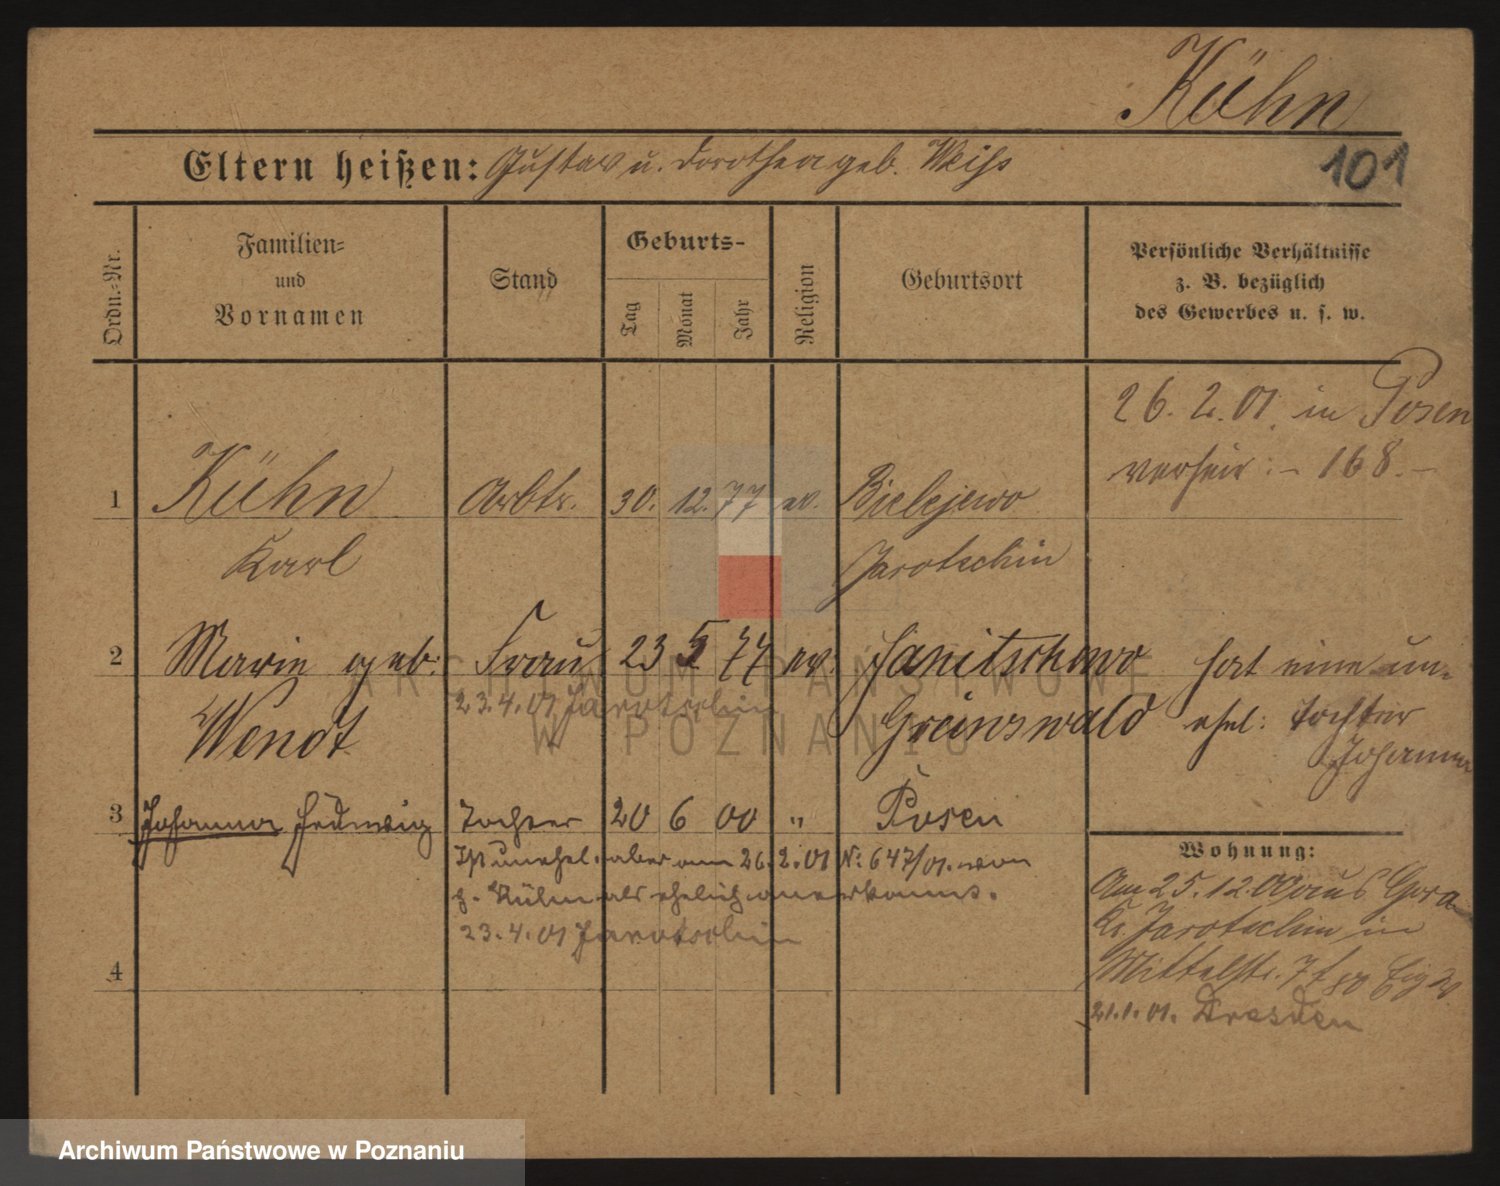 Kühn
Eltern heißen: Gustav u. Dorothea geb. Weiss
101
Ordn.-Nr.
Familien-
und
Vornamen
Stand
Geburts-
Tag
Monat
Jahr
Religion
Geburtsort
Persönliche Verhältnisse
z. B. bezüglich
des Gewerbes u. s. w.
26. 2. 01. in Posen
verheir: - 168. -
1 Kühn Arbtr. 30. 12. 77 ev. Bielejewo
Karl Jarotschin
2 Marie geb: Frau 23 5 77 ev. Janitschewo hat eine un-
23.4.01 Jarotschin
Wendt Greinswald ehel: Tochter
Johanna
3 Johanna Hedwig Tochter 20 6 00 " Posen
Ist unehel. aber am 26.2.01 N: 647/01. von
g. Kühn als ehelich anerkannt.
23.4.01 Jarotschin
4
Wohnung:
Am 25.12.00 aus Gora
Kr. Jarotschin in
Mittelstr. 7
21.1.01. Dresden
ARCHIWUM PAŃSTWOWE
W POZNANIU
Archiwum Państwowe w Poznaniu